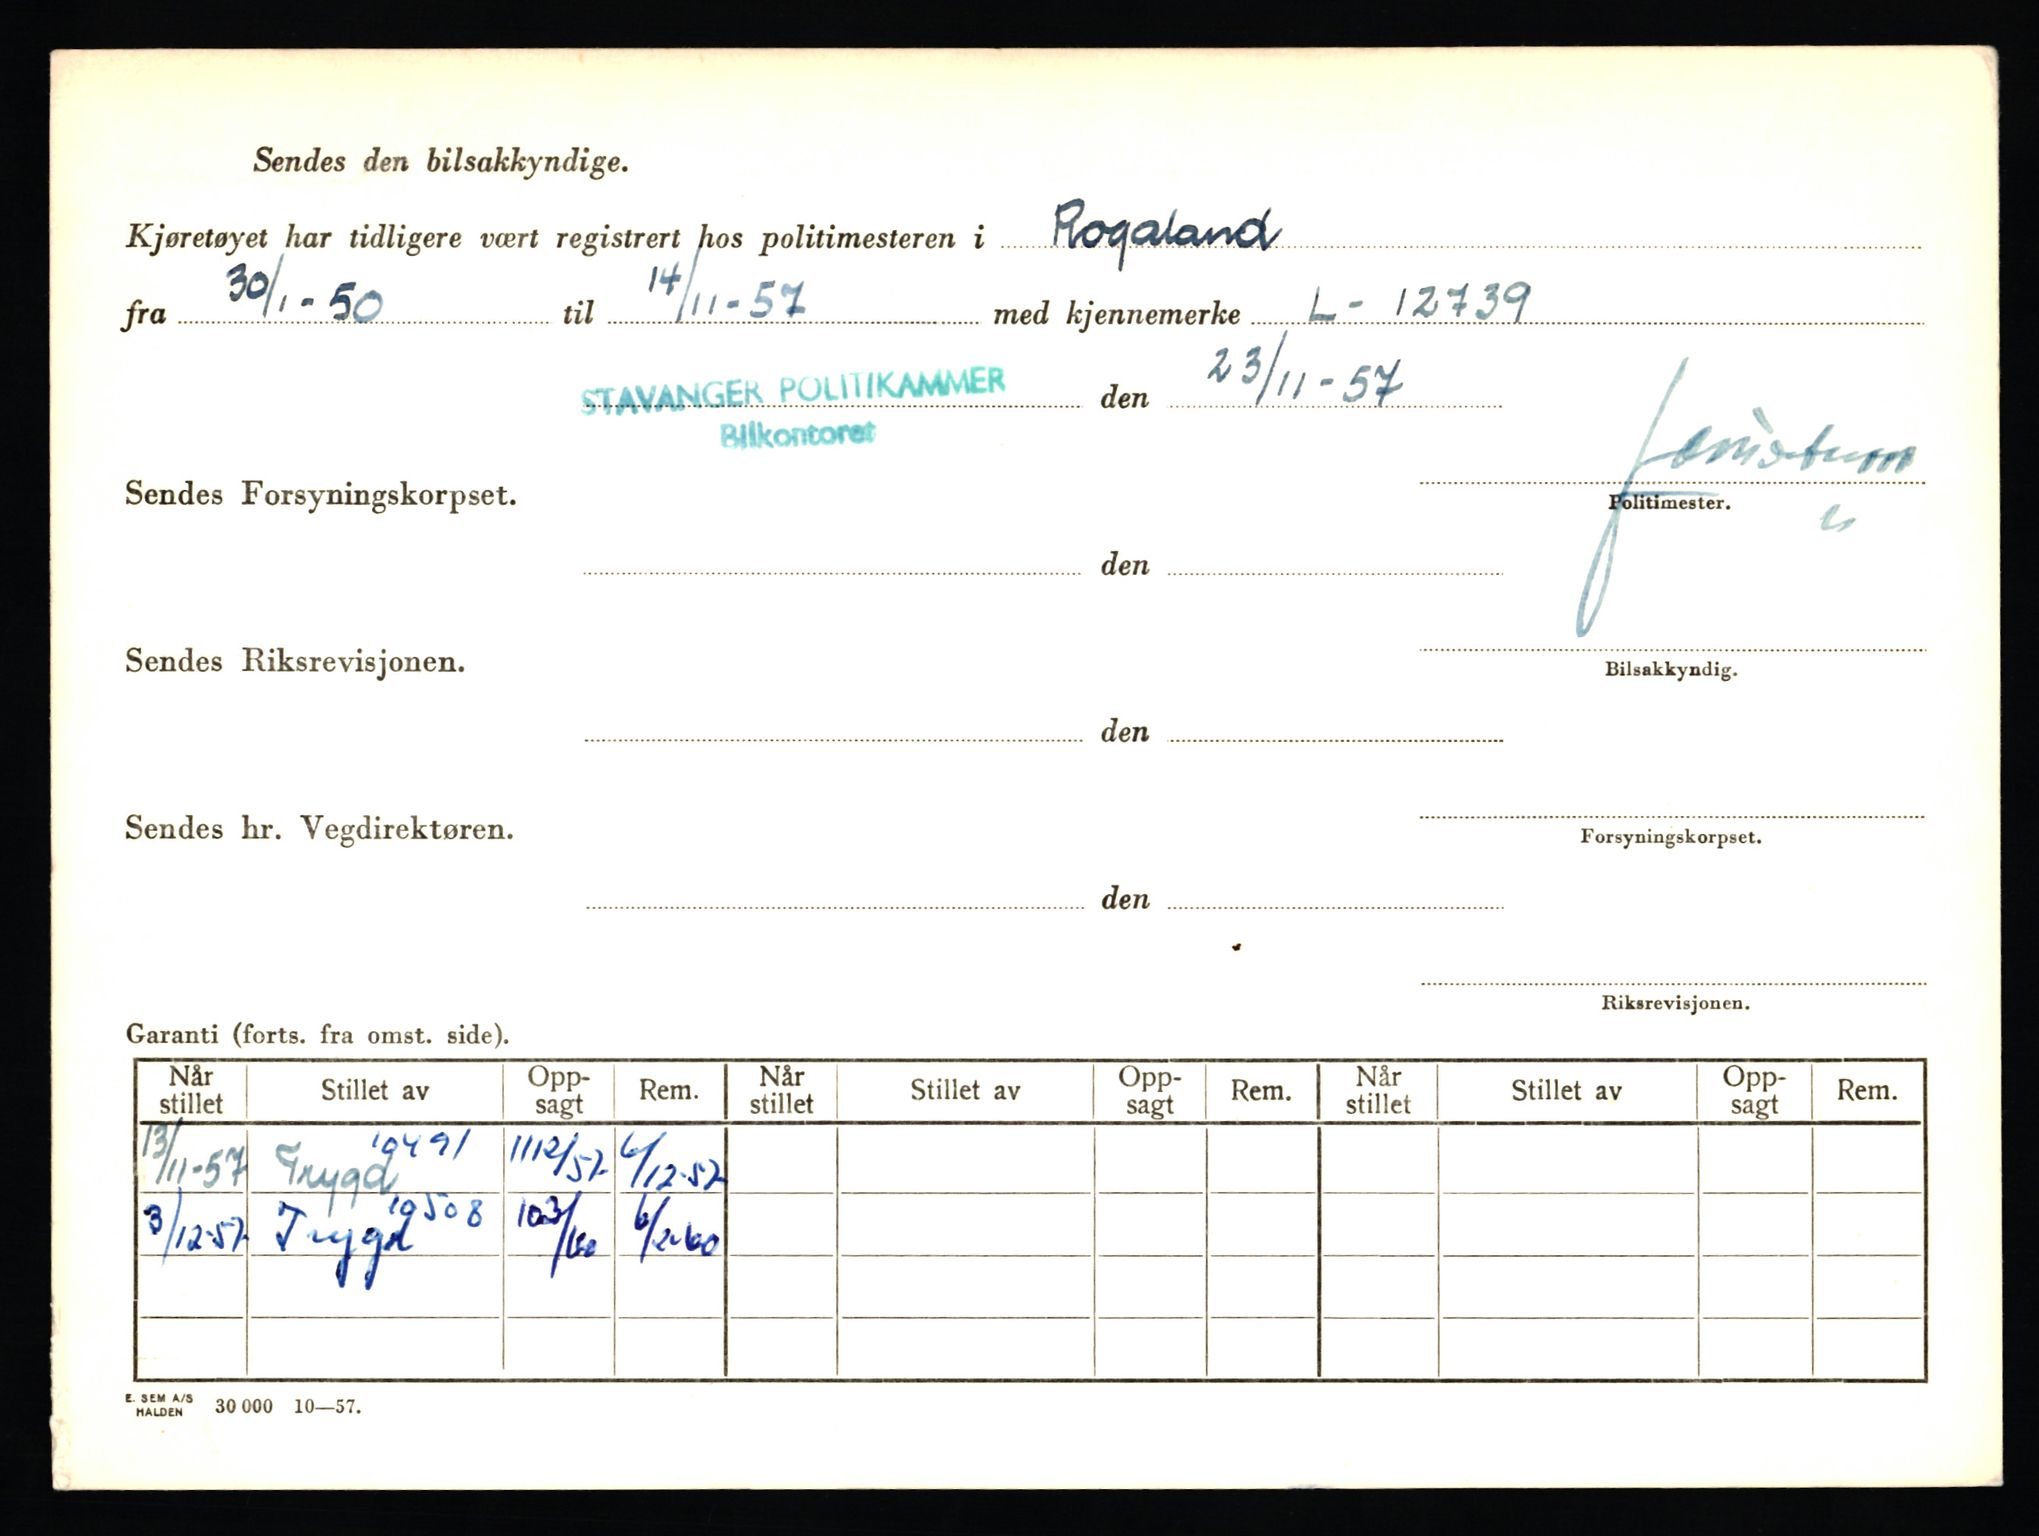 Sendes den bilsakkyndige.
Kjøretøyet har tidligere vært registrert hos politimesteren i Rogaland
fra 30/1-50 til 14/11-57 med kjennemerke L-12739
STAVANGER POLITIKAMMER den 23/11-57
Bilkontoret
Sendes Forsyningskorpset.
Politimester.
den
Sendes Riksrevisjonen.
Bilsakkyndig.
den
Sendes hr. Vegdirektøren.
Forsyningskorpset.
den
Riksrevisjonen.
Garanti (forts. fra omst. side).
Når stillet Stillet av Opp-sagt Rem. Når stillet Stillet av Opp-sagt Rem. Når stillet Stillet av Opp-sagt Rem.
13/11-57 Trygd 19491 1112/57 6/12-57
3/12-57 Trygd 19508 103/60 6/2-60
E. SEM A/S
HALDEN 30 000 10—57.